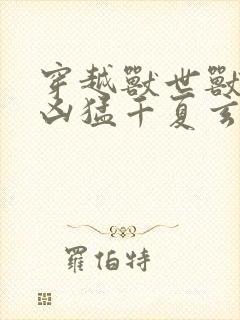 穿越獸世獸
凶猛干夏玄
羅伯特